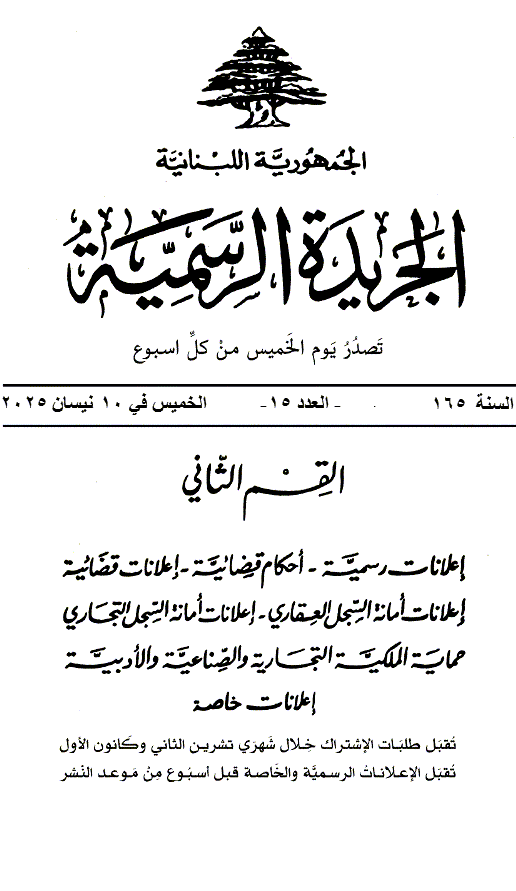 الجُمهُوريَّة اللبْنانيَّة
الجَريدَة الرسَّمِيَّة
تَصدُرُ يَوم الخَميس منْ كلِّ اسبوع
السنة ١٦٥ - العدد ١٥- الخميس في ١٠ نيسان ٢٠٢٥
القِسْم الثّاني
إعلانات رسميَّة - أحكام قضائيَّة - إعلانات قضائية
إعلانات أمانة السِّجل العقاري - إعلانات أمانة السِّجل التجاري
حماية الملكيَّة التجارية والصِّناعيَّة والأدبيَّة
إعلانات خاصة
تُقبَل طلبَات الإشتراك خِلال شَهرَي تشرين الثاني وكَانون الأول
تُقبَل الإعلاناتُ الرسميَّة والخَاصة قبل أسبُوع مِنْ مَوعد النَشر